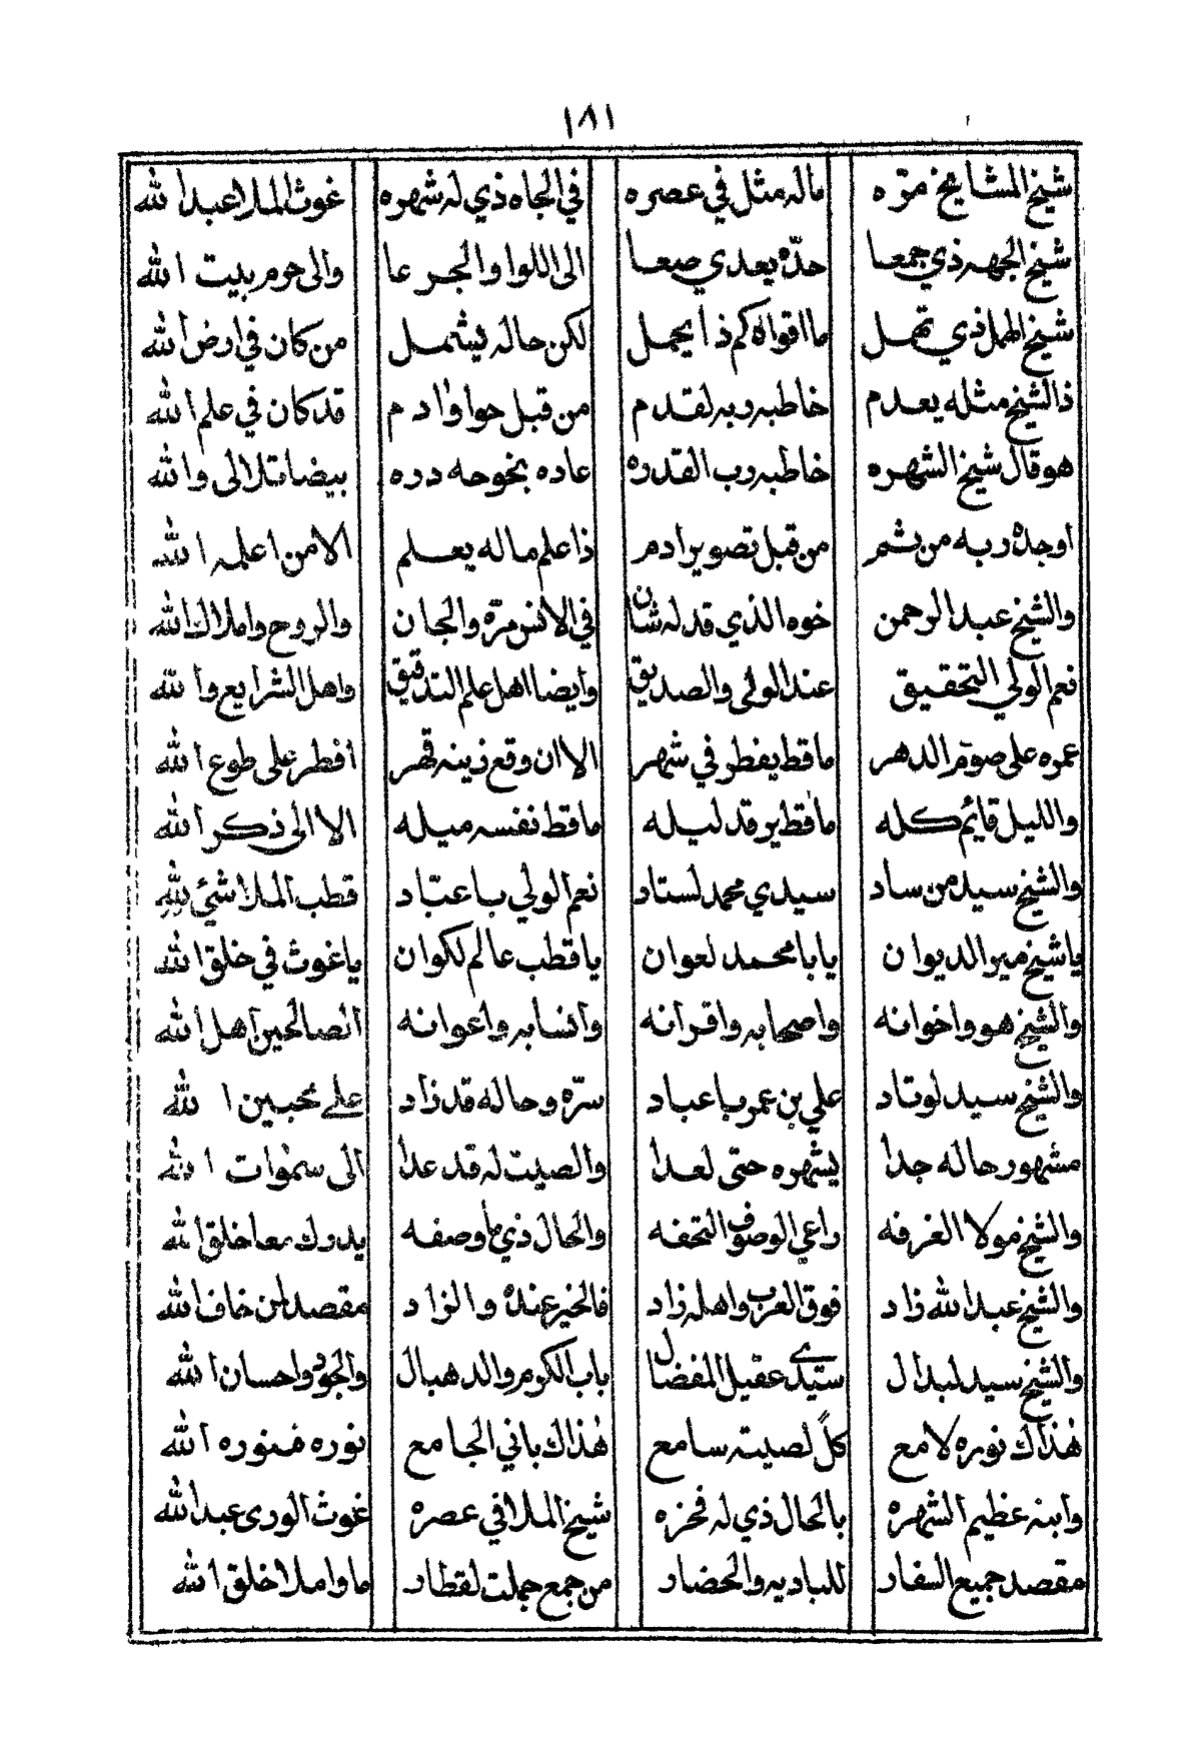 ١٨١
شيخ المشايخ مرّه ماله مثل في عصره في الجاه ذي له شهره غوث الملا عبد الله
شيخ الجهه ذي جمعا حدّه يعدي صنعا الى اللوا والجرعا والى حرم بيت الله
شيخ الهمل ذي تهمل ما اقواه كم ذا يحمل لكن حاله يشمل من كان في ارض الله
ذا الشيخ مثله يعدم خاطبه ربه لقدم من قبل حوا وادم قد كان في علم الله
هو قال شيخ الشهره خاطبه رب القدره عاده بخوخه دره بيضا تلالى والله
اوجده ربه من شم من قبل تصوير ادم ذا علم ماله يعلم الا من اعلمه الله
والشيخ عبد الرحمن خوه الذي قد له شان في الانس مرّه والجان والروح واملاك الله
نعم الولي التحقيق عند الولى والصديق وايضا اهل علم التدقيق واهل الشرايع والله
عمره على صوم الدهر ما قط يفطر في شهر الا ان وقع زينه قهر افطر على طوع الله
والليل قايم كله ما قط يرقد ليله ما قط نفسه ميله الا الى ذكر الله
والشيخ سيد من ساد سيدي محمد لستاد نعم الولي با عبّاد قطب الملا شيء لله
يا شيخ مير الديوان يا با محمد لعوان يا قطب عالم لكوان يا غوث في خلق الله
والشيخ هو واخوانه واصحابه واقرانه وانسابه واعوانه الصالحين اهل الله
والشيخ سيد لوتاد علي بن عمر با عباد سرّه وحاله قد زاد على محبين الله
مشهور حاله جدا يشهره حتى لعدا والصيت له قد عدا الى سموات الله
والشيخ مولا الغرفه راعي الوصوف التحفه والحال ذي ما وصفه يدرك معا خلق الله
والشيخ عبد الله زاد فوق العرب واهله زاد فالخير عنده والزاد مقصد لمن خاف الله
والشيخ سيد لبدال سيّدي عقيل المفضال باب الكرم والدهبال والجود واحسان الله
هذاك نوره لامع كلّ لصيته سامع هذاك باني الجامع نوره منوره الله
وابنه عظيم الشهره بالحال ذي له فخره شيخ الملا في عصره غوث الورى عبد الله
مقصد جميع السفار للباديه والحضار من جمع جملت لقطار ماوا ملا خلق الله